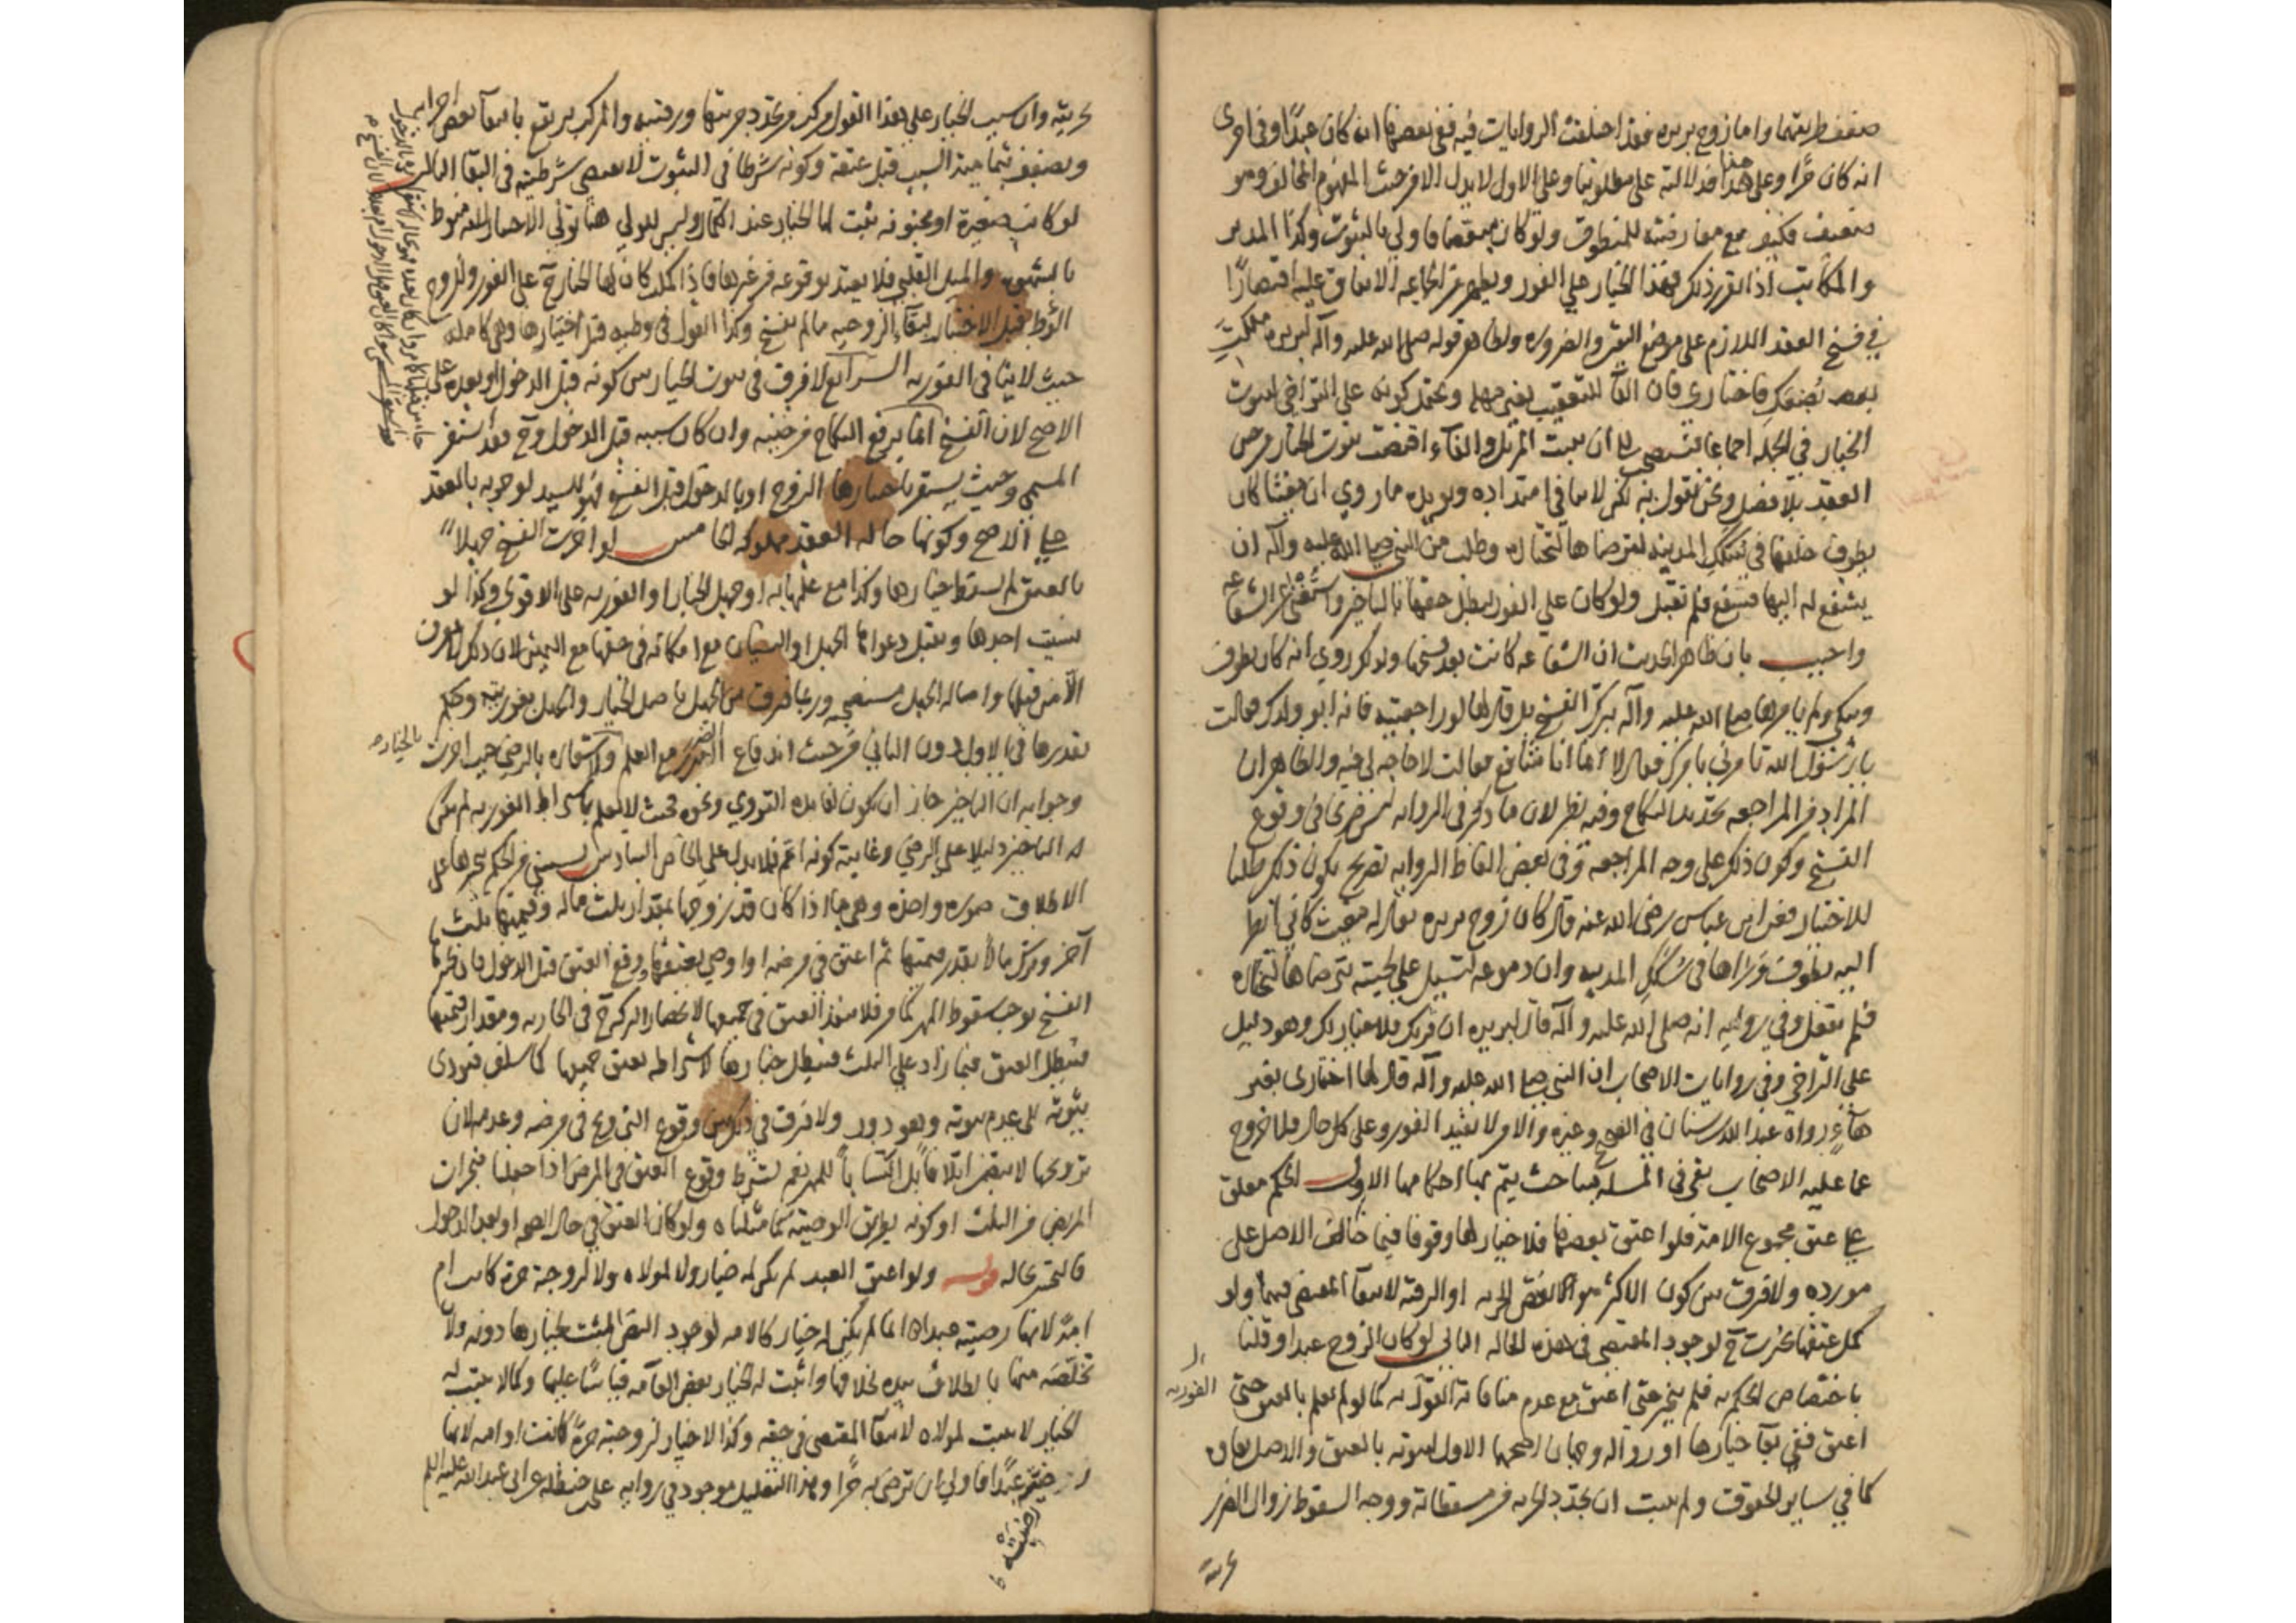 ضعف طريقها واما زوج بريره فقد اختلفت الروايات فيه ففي بعضها انه كان عبدا وفي اخرى
انه كان حرا وعلى هذا فدلالته على مطلوبنا وعلى الاول لا يدل الا من حيث المفهوم المخالف وهو
ضعيف فكيف مع معارضته للمنطوق ولو كان مبعضا فاولى بالثبوت وكذا المدبر
والمكاتبة اذا تقرر ذلك فهذا الخيار على الفور ويظهر من الجماعه الاتفاق عليه اقتصارا
في فسخ العقد اللازم على موضع اليقين والضروره ولظاهر قوله صلى الله عليه وآله لبريره ملكت
بضعك فاختاري فان الفآ للتعقيب بغير مهله ويحتمل كونه على التراخي لثبوت
الخيار في الجمله اجماعا فيستصحب الى ان يثبت المزيل والفآء اقتضت ثبوت الخيار من حين
العقد بلا فصل ونحن نقول به لكن لا ينافي امتداده ويؤيده ما روي ان مغيثا كان
يطوف خلفها في سكك المدينه يترضاها لتختاره وطلب من النبي صلى الله عليه وآله ان
يشفع له اليها فشفع فلم تقبل ولو كان على الفور لبطل حقها بالتاخير واستغنى عن الشفاعه
واجيب بان ظاهر الحديث ان الشفاعه كانت بعد فسخها ولذلك روي انه كان يطوف
ويبكي ولم يامرها صلى الله عليه وآله بترك الفسخ بل قال لها لو راجعتيه فانه ابو ولدك فقالت
يا رسول الله تامرني بامرك فقال لا انما انا شافع فقالت لا حاجه لي فيه والظاهر ان
المراد من المراجعه تجديد النكاح وفيه نظر لان ما ذكر في الروايه ليس صريحا في وقوع
الفسخ وكون ذلك على وجه المراجعه وفي بعض الفاظ الروايه تصريح بكون ذلك طلبا
للاختيار فعن ابن عباس رضي الله عنه قال كان زوج بريره يقال له مغيث كاني انظر
اليه يطوف وراها في سكك المدينه وان دموعه لتسيل على لحيته يترضاها لتختاره
فلم تفعل وفي روايه انه صلى الله عليه وآله قال لبريره ان قربك فلا خيار لك وهو دليل
على التراخي وفي روايات الاصحاب ان النبي صلى الله عليه وآله قال لها اختاري بغير
فآء رواه عبد الله بن سنان في الصحيح وغيره والامر لا يفيد الفور وعلى كل حال فلا خروج
عما عليه الاصحاب بقي في المسله مباحث يتم بها احكامها الاول الحكم معلق
على عتق مجموع الامة فلو اعتق بعضها فلا خيار لها وقوفا فيما خالف الاصل على
مورده ولا فرق بين كون الاكثر هو البعض الحر او الرقيه لانتفآ المقتضي فيهما ولو
كمل عتقها تخيرت ح لوجود المقتضي في هذه الحاله الثاني لو كان الزوج عبدا وقلنا
باختصاص الحكم به فلم يتخير حتى اعتق مع عدم منافاة الفوريه كما لو لم تعلم بالعتق حتى
اعتق ففي بقآ خيارها او زواله وجهان اصحهما الاول لثبوته بالعتق والاصل بقاؤه
كما في ساير الحقوق ولم يثبت ان تجدد الحريه من مسقطاته ووجه السقوط زوال الضرر
الفوريه
حريته وان سبب الخيار على هذا القول مركب من تجدد حريتها ورقيته والمركب يرتفع بانتفآ بعض اجزايه
ويضعف بتماميه السبب قبل عتقه وكونه شرطا في الثبوت لا يقتضي شرطيته في البقآ الثالث
لو كانت صغيرة او مجنونه ثبت لها الخيار عند الكمال وليس للولي هنا تولي الاختيار لانه منوط
بالشهوه والميل القلبي فلا يعتد بوقوعه من غيرها فاذا كملت كان لها الخيار ح على الفور وللزوج
الوطؤ قبل الاختيار لبقآء الزوجيه ما لم يفسخ وكذا القول في وطيه قبل اختيارها وهي كامله
حيث لا ينافي الفوريه الرابع لا فرق في ثبوت الخيار بين كونه قبل الدخول او بعده على
الاصح لان الفسخ انما يرفع النكاح من حينه وان كان سببه قبل الدخول وح فقد استقر
المسمى وحيث يستقر باختيارها الزوج او بالدخول قبل الفسخ فهو للسيد لوجوبه بالعقد
على الاصح وكونها حاله العقد مملوكه الخامس لو اخرت الفسخ جهلا
بالعتق لم يسقط خيارها وكذا مع علمها به او جهل الخيار او الفوريه على الاقوى وكذا لو
نسيت احدها ويقبل دعواها الجهل او النسيان مع امكانه في حقها مع اليمين لان ذلك لا يعرف
الا من قبلها واصاله الجهل مستصحبه وربما فرق بين الجهل باصل الخيار والجهل بفوريته وحكم
بعذرها في الاول دون الثاني من حيث اندفاع الضرر مع العلم وإشعاره بالرضى حيث اخرت
بالخيار
وجوابه ان التاخير جاز ان يكون لفايده التروي ونحوه فحيث لا تعلم باشتراط الفوريه لم يكن
التاخير دليلا على الرضى وغايته كونه اعم فلا يدل على الخاص السادس يستثنى من الحكم بتخيرها على
الاطلاق صوره واحده وهي ما اذا كان قد زوجها بمقدار ثلث ماله وقيمتها ثلث
آخر وترك مالا بقدر قيمتها ثم اعتق في مرضه او اوصى بعتقها ووقع العتق قبل الدخول فان تخيرها
الفسخ يوجب سقوط المهر كما مر فلا ينفذ العتق في جميعها لانحصار التركه ح في الجاريه ومقدار قيمتها
فيبطل العتق فيما زاد على الثلث فيبطل خيارها لاشتراطه بعتق جميعها كما سلف فيودي
ثبوته الى عدم ثبوته وهو دور ولا فرق في ذلك بين وقوع التزويج في مرضه وعدمه لان
تزويجها لا يتضمن اتلافا بل اكتسابا للمهر نعم يشترط وقوع العتق في المرض اذا جعلنا منجزات
المريض من الثلث او كونه بطريق الوصيه كما مثلناه ولو كان العتق في حال الصحه او بعد الدخول
فالتخير بحاله قوله ولو اعتق العبد لم يكن له خيار ولا لمولاه ولا لزوجته حرة كانت ام
امة لانها رضيته عبدا انما لم يكن له خيار كالامه لوجود النص المثبت لخيارها دونه ولان
تخلصه منها بالطلاق بيده بخلافها واثبت له الخيار بعض العامه قياسا عليها وكما لا يثبت له
الخيار لا يثبت لمولاه لانتفآ المقتضي في حقه وكذا لا خيار لزوجته حرة كانت او امه لانها
رضيته عبدا فاولى ان ترضى به حرا وهذا التعليل موجود في روايه علي بن حنظله عن ابي عبد الله عليه السلم
رضيته